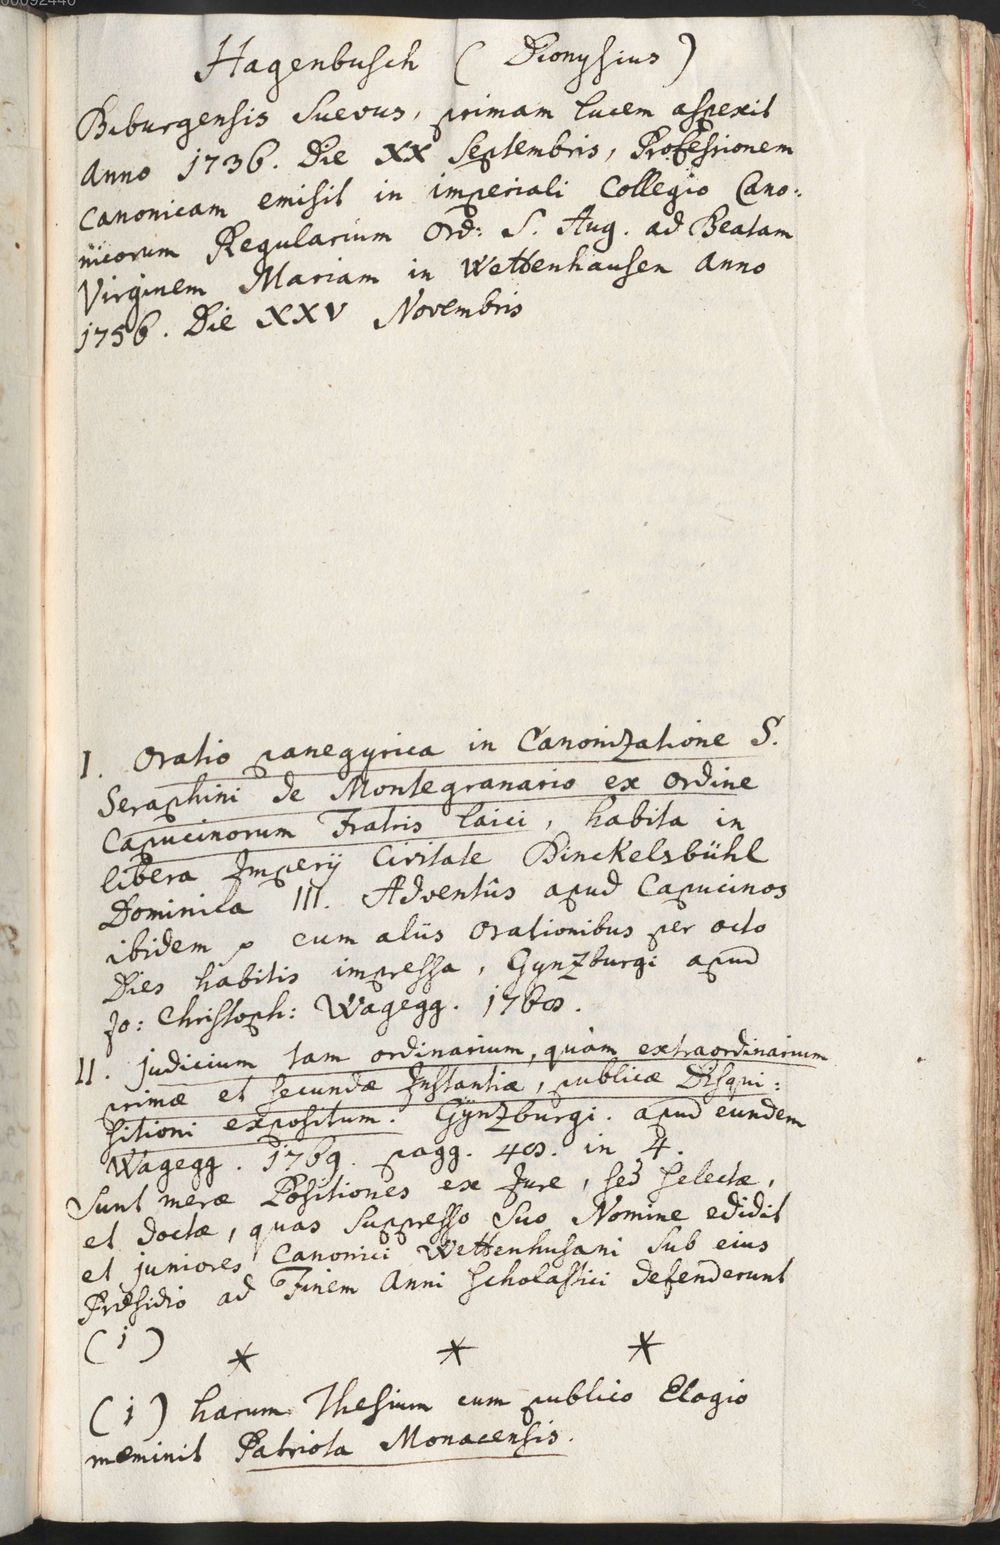 00092440
Hagenbusch (Dionysius)
Biburgensis Suevus, primam lucem aspexit
Anno 1736. Die XX Septembris, Professionem
Canonicam emisit in imperiali Collegio Cano:
nicorum Regularium Ord: S. Aug. ad Beatam
Virginem Mariam in Wettenhausen Anno
1756. Die XXV Novembris
I. Oratio panegyrica in Canonizatione S.
Seraphini de Montegranario ex ordine
Capucinorum Fratris laici, habita in
libera Imperij Civitate Dinckelsbühl
Dominica III. Adventûs apud Capucinos
ibidem, cum aliis Orationibus per octo
Dies habitis impressa, Gynzburgi apud
Jo: Christoph: Wagegg. 1768.
II. Judicium tam ordinarium, quàm extraordinarium
primæ et secundæ Instantiæ, publicæ Disqui:
sitioni expositum. Gÿnzburgi. apud eundem
Wagegg. 1769. pagg. 48. in 4.
Sunt meræ Positiones ex Jure, sed selectæ,
et doctæ, quas suppresso suo Nomine edidit
et juniores Canonici Wettenhusani sub eius
Præsidio ad Finem Anni scholastici defenderunt
(i)
* * *
(i) harum Thesium cum publico Elogio
meminit Patriota Monacensis.